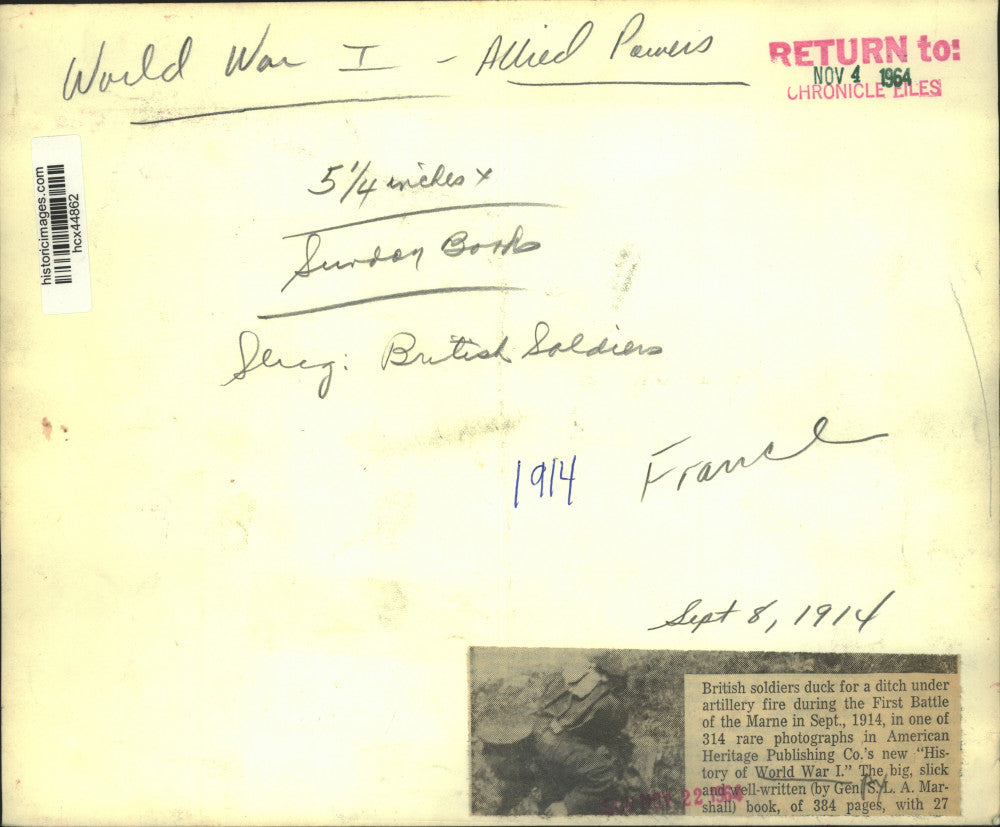 World War I - Allied Powers
RETURN to:
NOV 4 1964
CHRONICLE FILES
historicimages.com
hcx44862
5 1/4 inches x
Sunday Books
Slug: British Soldiers
1914 France
Sept 8, 1914
British soldiers duck for a ditch under
artillery fire during the First Battle
of the Marne in Sept., 1914, in one of
314 rare photographs in American
Heritage Publishing Co.'s new "His-
tory of World War I." The big, slick
and well-written (by Gen. S. L. A. Mar-
shall) book, of 384 pages, with 27
22 1964